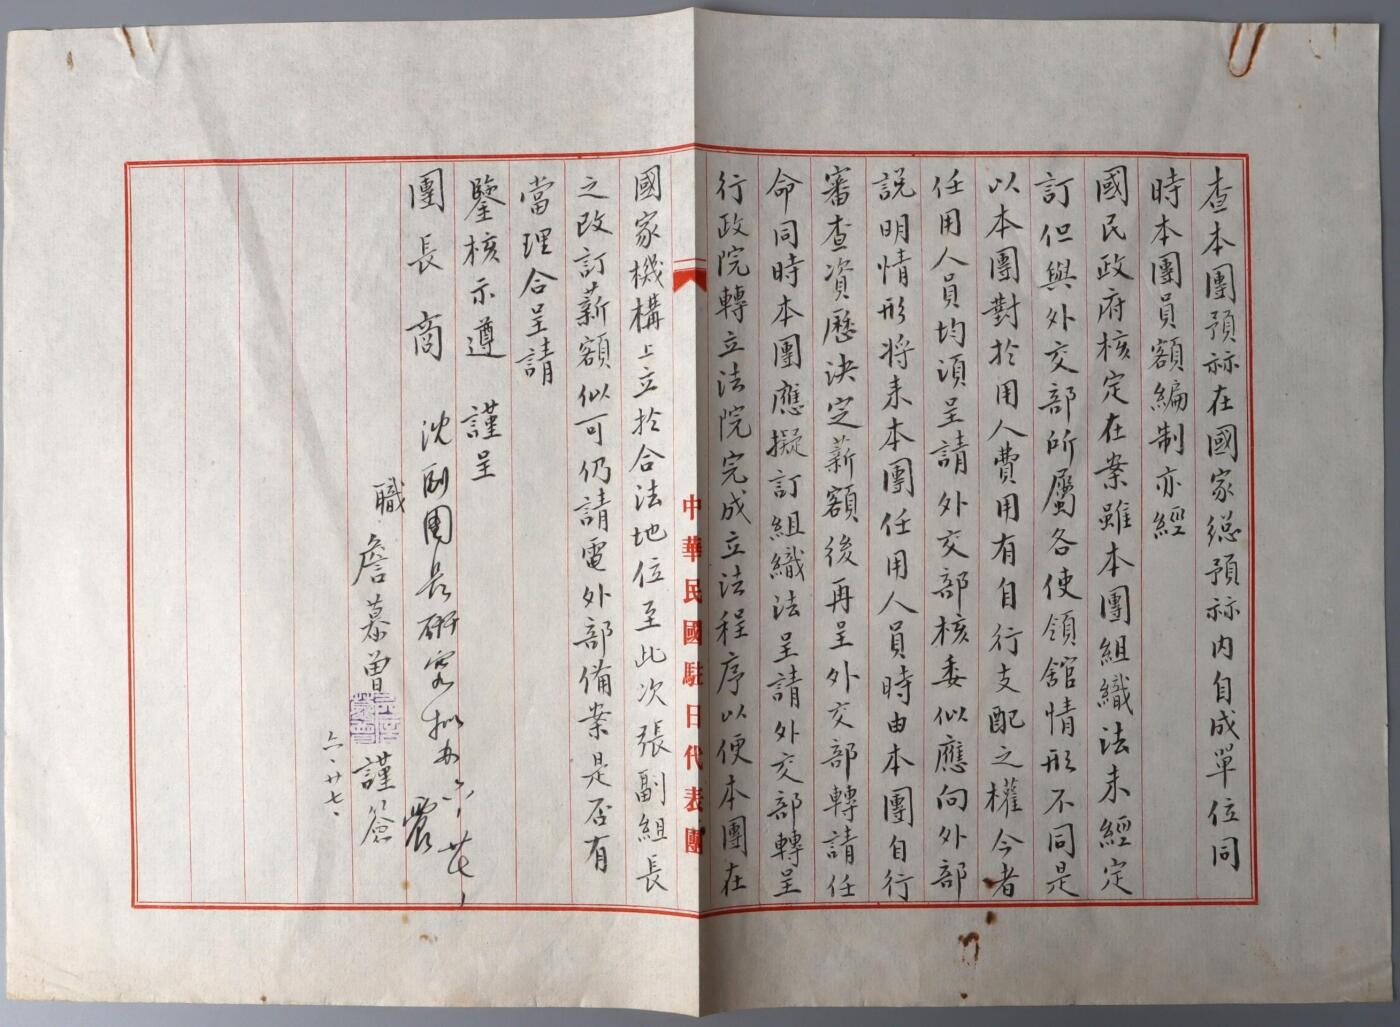 查本團預祘在國家總預祘內自成單位同
時本團員額編制亦經
國民政府核定在案雖本團組織法未經定
訂但與外交部所屬各使領舘情形不同是
以本團對於用人費用有自行支配之權今者
任用人員均須呈請外交部核委似應向外部
說明情形將來本團任用人員時由本團自行
審查資歷決定薪額後再呈外交部轉請任
命同時本團應擬訂組織法呈請外交部轉呈
行政院轉立法院完成立法程序以便本團在
中華民國駐日代表團
國家機構上立於合法地位至此次張副組長
之改訂薪額似可仍請電外部備案是否有
當理合呈請
鑒核示遵 謹呈
團長商
沈副團長研究擬办 六、廿七、
震
職 詹慕曾 謹簽
六、廿七、